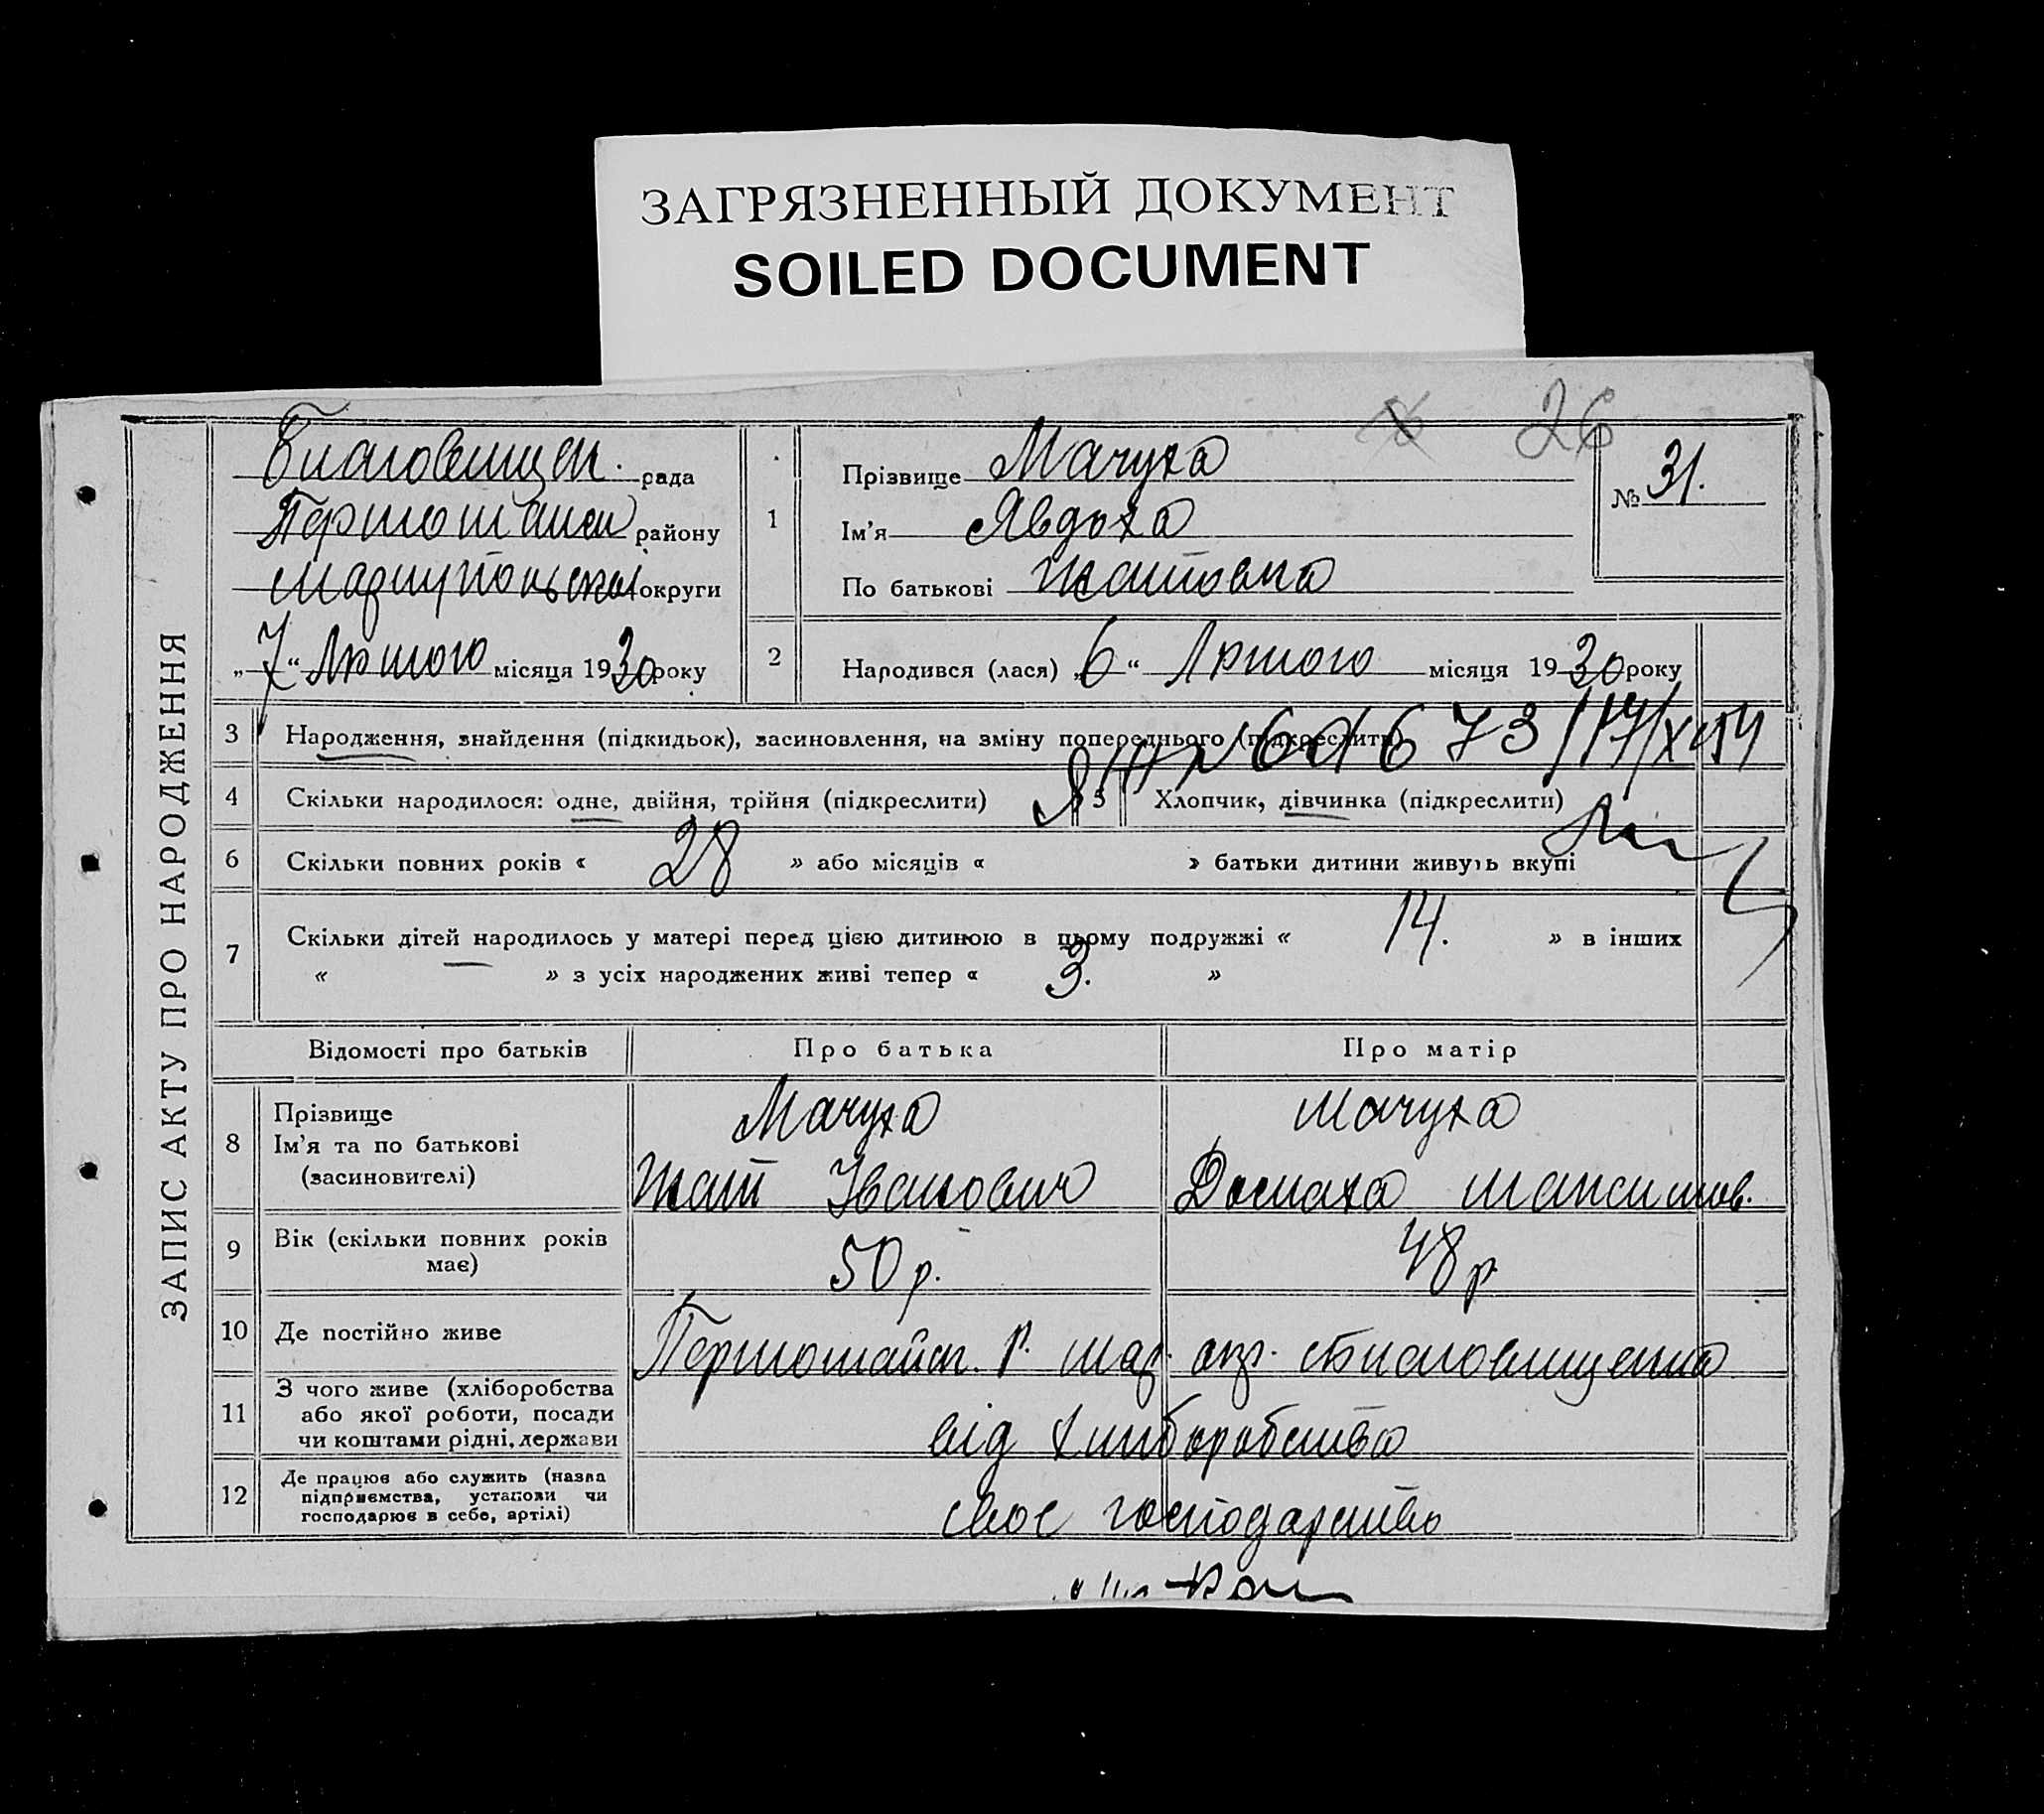 ЗАГРЯЗНЕННЫЙ ДОКУМЕНТ
SOILED DOCUMENT
26
ЗАПИС АКТУ ПРО НАРОДЖЕННЯ
Благовіщен. рада
Першотравн району
Маріупольської округи
„7“ Лютого місяця 1930 року
1
Прізвище Мачуха
Ім'я Явдоха
По батькові
№ 31.
2
Народився (лася) „6“ Лютого місяця 1930 року
3 Народження, знайдення (підкидьок), засиновлення, на зміну попереднього (підкреслити)
4 Скільки народилося: одне, двійня, трійня (підкреслити) 5 Хлопчик, дівчинка (підкреслити)
6 Скільки повних років « 28 » або місяців « » батьки дитини живуть вкупі
7 Скільки дітей народилось у матері перед цією дитиною в цьому подружжі « 14. » в інших
« » з усіх народжених живі тепер « 3. »
Відомості про батьків Про батька Про матір
8 Прізвище Мачуха Мачуха
Ім'я та по батькові Іванович Домаха Максимов.
(засиновителі)
9 Вік (скільки повних років має) 50 р. 48 р.
10 Де постійно живе Р. Мар. окр.
11 З чого живе (хліборобства
або якої роботи, посади
чи коштами рідні, держави
від хліборобства
12 Де працює або служить (назва
підприємства, установи чи
господарює в себе, артілі)
своє господарство